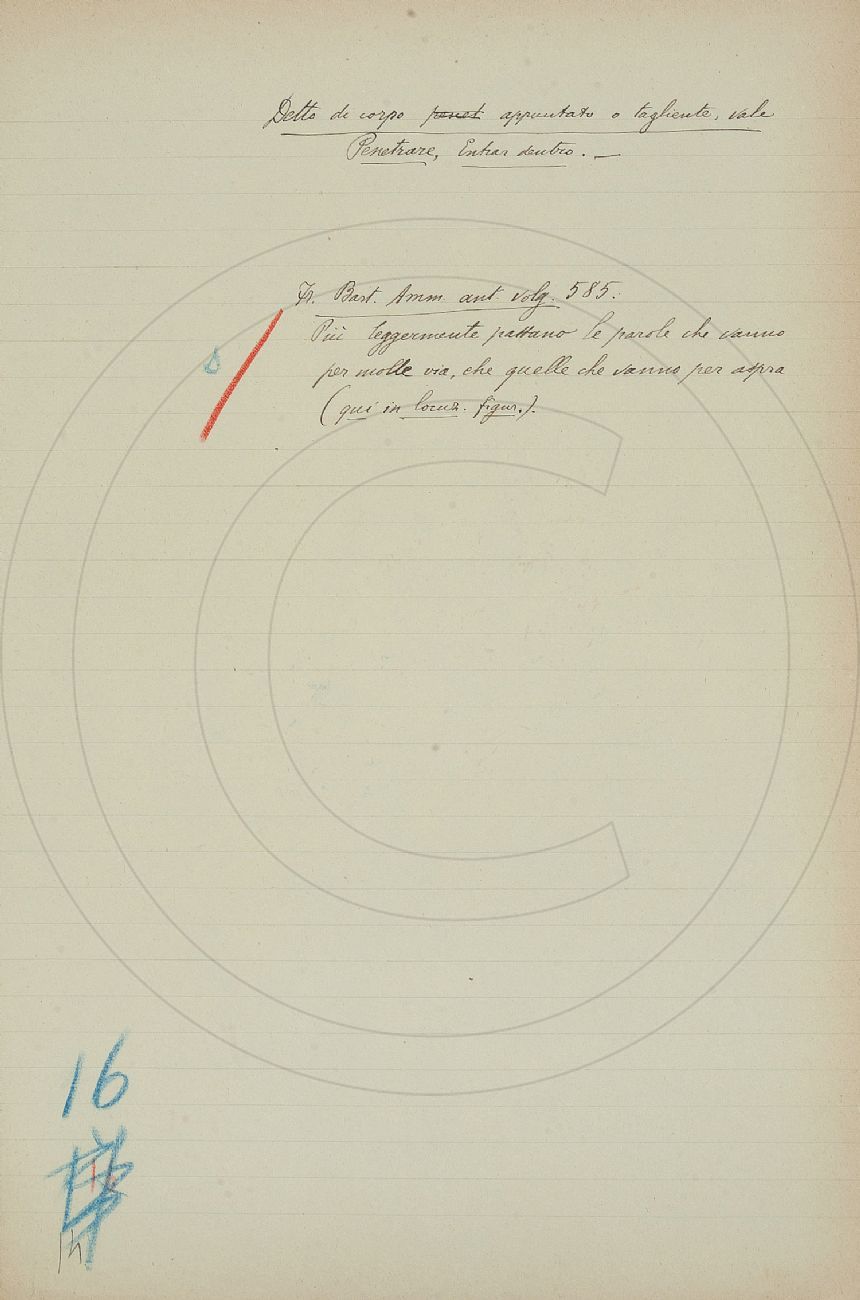 Detto di corpo penet appuntato o tagliente, vale
Penetrare, Entrar dentro. —
Fr. Bart. Amm. ant. volg. 585.
Più leggermente passano le parole che vanno
per molle via, che quelle che vanno per aspra
(qui in locuz. figur.).
16
14